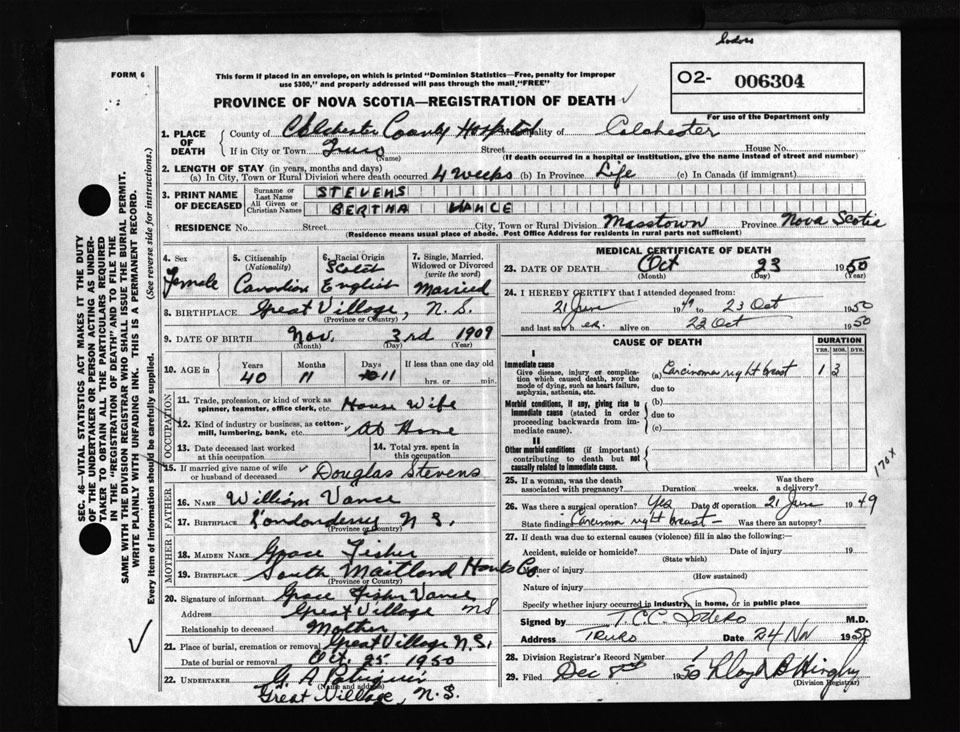 Sodero
FORM 6
This form if placed in an envelope, on which is printed "Dominion Statistics—Free, penalty for improper
use $300," and properly addressed will pass through the mail "FREE"
O2- 006304
For use of the Department only
PROVINCE OF NOVA SCOTIA—REGISTRATION OF DEATH ✓
1. PLACE OF DEATH
County of Colchester County Hospital Municipality of Colchester
If in City or Town Truro Street House No.
(Name) (If death occurred in a hospital or institution, give the name instead of street and number)
2. LENGTH OF STAY (in years, months and days)
(a) In City, Town or Rural Division where death occurred 4 weeks (b) In Province Life (c) In Canada (if immigrant)
3. PRINT NAME OF DECEASED
Surname or Last Name STEVENS
All Given or Christian Names BERTHA VANCE
RESIDENCE No. Street City, Town or Rural Division Masstown Province Nova Scotia
(Residence means usual place of abode. Post Office Address for residents in rural parts not sufficient)
4. Sex Female
5. Citizenship (Nationality) Canadian
6. Racial Origin Scotch English
7. Single, Married, Widowed or Divorced (write the word) Married
8. BIRTHPLACE Great Village, N.S.
(Province or Country)
9. DATE OF BIRTH Nov. 3rd 1909
(Month) (Day) (Year)
10. AGE in Years Months Days If less than one day old
40 11 11 hrs. or min.
OCCUPATION
11. Trade, profession, or kind of work as
spinner, teamster, office clerk, etc. House Wife
12. Kind of industry or business, as cotton-
mill, lumbering, bank, etc. At Home
13. Date deceased last worked at this occupation
14. Total yrs. spent in this occupation
15. If married give name of wife
or husband of deceased ✓ Douglas Stevens
FATHER
16. NAME William Vance
17. BIRTHPLACE Londonderry N.S.
(Province or Country)
MOTHER
18. MAIDEN NAME Grace Fisher
19. BIRTHPLACE South Maitland Hants Co
(Province or Country)
20. Signature of informant Grace Fisher Vance
Address Great Village NS
Relationship to deceased Mother
21. Place of burial, cremation or removal Great Village N.S.
Date of burial or removal Oct. 25, 1950
22. UNDERTAKER G. A.
(Name and address)
Great Village, N.S.
MEDICAL CERTIFICATE OF DEATH
23. DATE OF DEATH Oct 23 1950
(Month) (Day)
24. I HEREBY CERTIFY that I attended deceased from:
21 June 1949 to 23 Oct 1950
and last saw h er. alive on 22 Oct 1950
CAUSE OF DEATH DURATION
YRS. MOS. DYS.
I
Immediate cause
Give disease, injury or complication which caused death, NOT the mode of dying, such as heart failure, asphyxia, asthenia, etc.
(a) Carcinoma right breast 1 3
due to
Morbid conditions, if any, giving rise to immediate cause (stated in order proceeding backwards from immediate cause).
(b)
due to
(c)
II
Other morbid conditions (if important) contributing to death but not causally related to immediate cause.
170x
25. If a woman, was the death associated with pregnancy? Duration weeks. Was there a delivery?
26. Was there a surgical operation? Yes Date of operation 21 June 1949
State findings Carcinoma right breast — Was there an autopsy?
27. If death was due to external causes (violence) fill in also the following:—
Accident, suicide or homicide? Date of injury 19
(State which)
Manner of injury
(How sustained)
Nature of injury
Specify whether injury occurred in industry, in home, or in public place
Signed by T.C.C. Sodero M.D.
Address Truro Date 24 Nov 1950
28. Division Registrar's Record Number
29. Filed Dec 8th 1950 Lloyd B
(Division Registrar)
SEC. 46—VITAL STATISTICS ACT MAKES IT THE DUTY
OF THE UNDERTAKER OR PERSON ACTING AS UNDER-
TAKER TO OBTAIN ALL THE PARTICULARS REQUIRED
IN THE "REGISTRATION OF DEATH" AND TO FILE THE
SAME WITH THE DIVISION REGISTRAR WHO SHALL ISSUE THE BURIAL PERMIT.
WRITE PLAINLY WITH UNFADING INK. THIS IS A PERMANENT RECORD.
Every item of information should be carefully supplied. (See reverse side for instructions.)